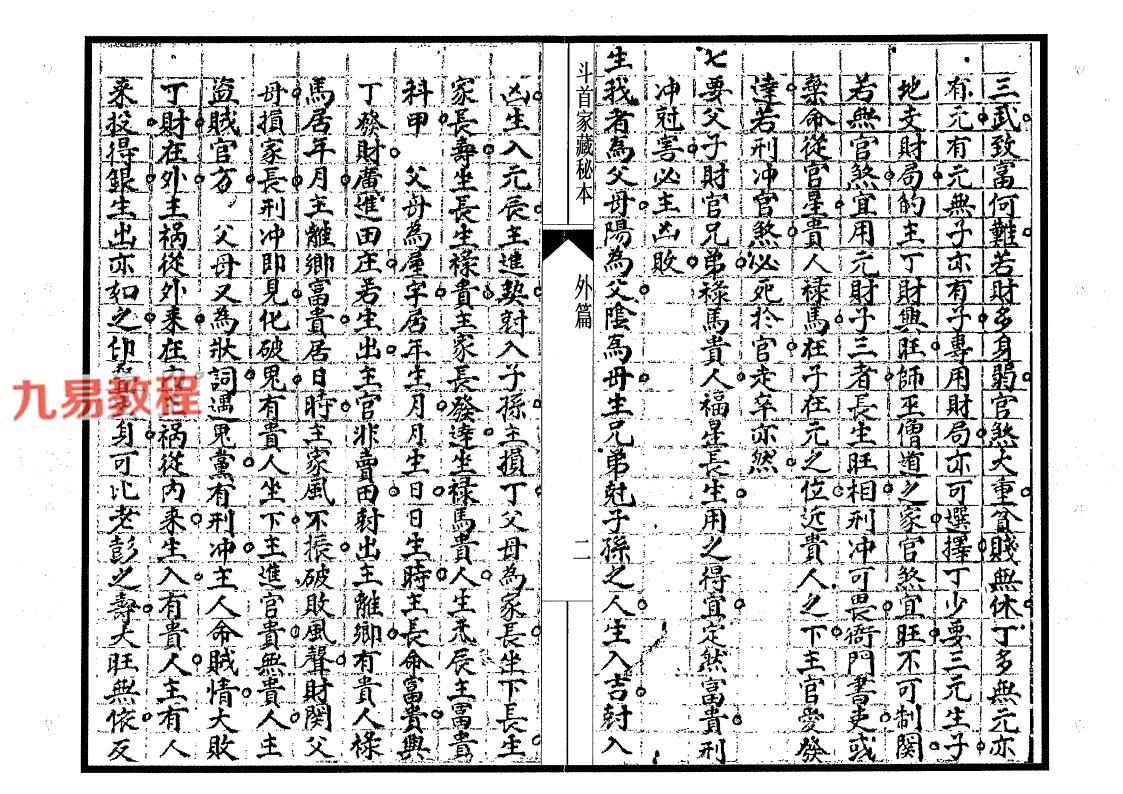 三武致富何難若財多身弱官煞大重貧賤無休丁多無元亦
有元有元無子亦有子專用財局亦可選擇丁少要三元生子
地支財局的主丁財興旺師巫僧道之家官煞宜旺不可制関
若無官煞宜用元財子三者長生旺相刑冲可畏衙門書吏或
藥命從官星貴人祿馬在子在元之位近貴人之下主官爱發
達若刑冲官煞必死於官走卒亦然
七要父子財官兄弟祿馬貴人福星長生用之得宜定然富貴刑
冲尅害必主凶敗
生我者為父母陽為父陰為母生兄弟尅子孫之人生入吉尅入
斗首家藏秘本 外篇 二
凶生入元辰主進契尅入子孫主損丁父母為家長坐下長生
家長壽坐長生祿貴主家長發達坐祿馬貴人生炁辰主富貴
科甲 父母為屋宇居年生月月生日日生時主長命富貴興
丁發財廣進田庄若生出主官非賣田尅出主離鄉有貴人祿
馬居年月主離鄉富貴居日時主家風不振破敗風聲財関父
母損家長刑冲即見化破鬼有貴人坐下主進官貴無貴人主
盜賊官方 父母又為狀詞遇鬼黨有刑冲主人命賊情大敗
丁財在外主祸從外来在 祸從内来生入有貴人主有人
来投得銀生出亦如之印 身可比老彭之壽大旺無依反
九易教程